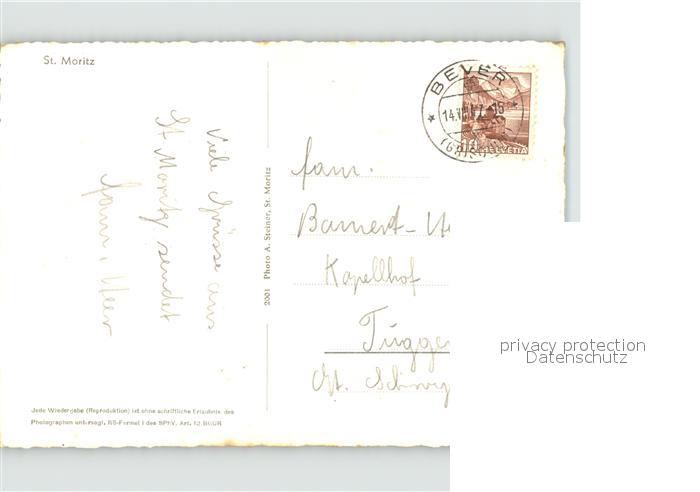 St. Moritz
Viele Grüsse aus
St Moritz sendet
Fam. Meer
2001 Photo A. Steiner, St. Moritz
BEVER
HELVETIA
10
Fam.
Bamert-
Kapellhof
Tugge
Kt. Schwy
Jede Wiedergabe (Reproduktion) ist ohne schriftliche Erlaubnis des
Photographen untersagt. RS-Formel I des SPhV. Art. 12 BGUR
privacy protection
Datenschutz